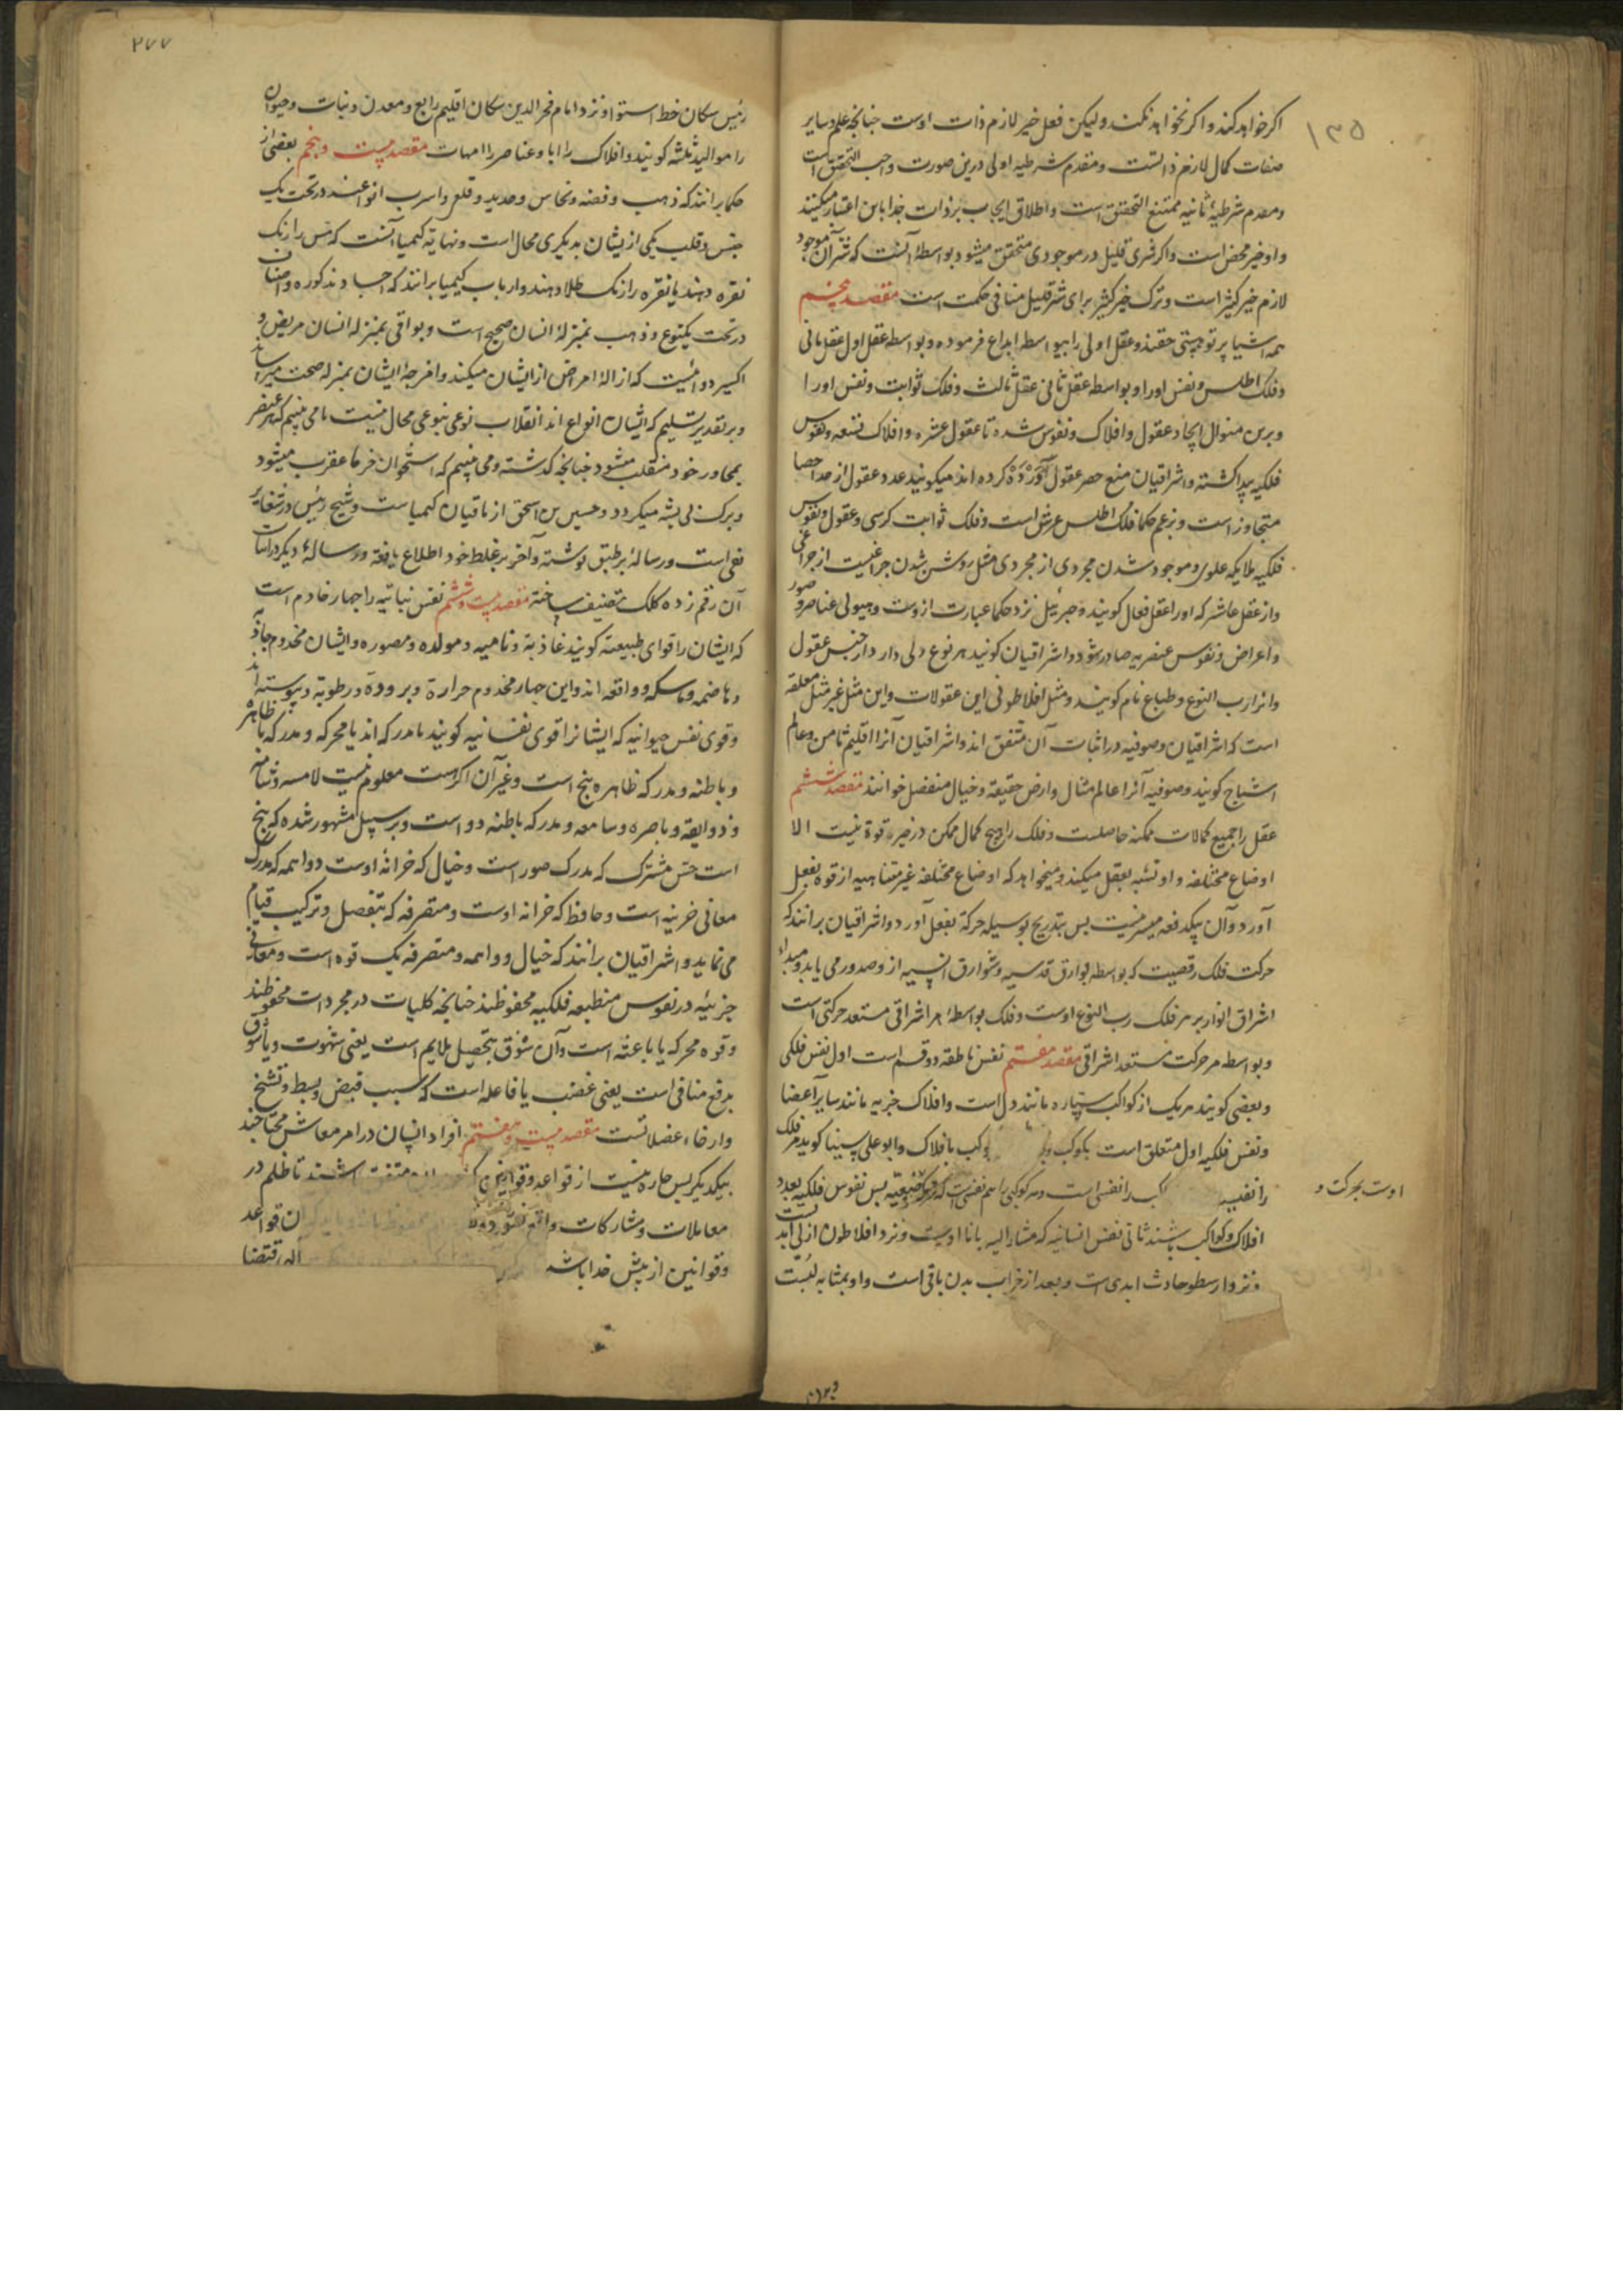 ۱۳۵
اکر خواهد کند و اکر نخواهد نکند ولیکن فعل خیر لازم ذات اوست چنانچه علم و سایر
صفات کمال لازم ذاتست و مقدم شرطیه اولی درین صورت واجب التحقق است
و مقدم شرطیهٔ ثانیه ممتنع التحقق است و اطلاق ایجاب بر ذات خدا باین اعتبار میکنند
و او خیر محض است و اکر شری قلیل در موجودی متحقق میشود بواسطهٔ آنست که شر آن موجود
لازم خیر کثیر است و ترک خیر کثیر برای شر قلیل منافی حکمت است مقصد پنجم
همه اشیا پرتو هستی حقند و عقل اولی را بیواسطه ابداع فرموده و بواسطه عقل اول عقل ثانی
و فلک اطلس و نفس اورا و بواسطه عقل ثانی عقل ثالث و فلک ثوابت و نفس اورا
و برین منوال ایجاد عقول و افلاک و نفوس شده تا عقول عشره و افلاک تسعه و نفوس
فلکیه پیدا کشته و اشراقیان منع حصر عقول در ده کرده اند میکویند عدد عقول از حد احصا
متجاوز است و بزعم حکما فلک اطلس عرش است و فلک ثوابت کرسی و عقول و نفوس
فلکیه ملایکه علوی و موجود شدن مجردی از مجردی مثل روشن شدن چراغیست از چراغی
و از عقل عاشر که اورا عقل فعال کویند و جبرئیل نزد حکما عبارت ازوست و هیولی عناصر و صور
و اعراض و نفوس عنصریه صادر شود و اشراقیان کویند هر نوع ربی دارد از جنس عقول
و انرا رب النوع و طباع تام کویند و مثل افلاطونی این عقولات و این مثل غیر مثل معلقه
است که اشراقیان و صوفیه در اثبات آن متفق اند و اشراقیان آنرا اقلیم ثامن و عالم
اشباح کویند و صوفیه آنرا عالم مثال و ارض حقیقة و خیال منفصل خوانند مقصد ششم
عقل را جمیع کمالات ممکنه حاصلست و فلک را هیچ کمال ممکن در حیز قوة نیست الا
اوضاع مختلفه و او تشبه بعقل میکند و میخواهد که اوضاع مختلفه غیر متناهیه از قوه بفعل
آورد و آن بیکدفعه میسر نیست پس بتدریج بوسیله حرکة بفعل آورد و اشراقیان برانند که
حرکت فلک رقصیت که بواسطه بوارق قدسیه و شوارق انسیه ازو صدور می یابد و مبداء
اشراق انوار بر هر فلک رب النوع اوست و فلک بواسطهٔ هر اشراقی مستعد حرکتی است
و بواسطه هر حرکت مستعد اشراقی مقصد هفتم نفس ناطقه دو قسم است اول نفس فلکی
و بعضی کویند هر یک از کواکب سیاره مانند دل است و افلاک جزیه مانند سایر اعضا
و نفس فلکیه اول متعلق است بکوکب و کب با فلاک و ابو علی سینا کوید هر فلک
را نفسیه کب را نفسی است و هر کوکبی را هم نفسی است پس نفوس فلکیه بعدد
اوست بحرکت و
افلاک و کواکب باشند ثانی نفس انسانیه که مشار الیه بانا اوست و نزد افلاطون ازلی ابدیست
و نزد ارسطو حادث ابدی است و بعد از خراب بدن باقی است و او بمثابه
۲۷۷
رئیس سکان خط استوا و نزد امام فخر الدین سکان اقلیم رابع و معدن و نبات و حیوان
را موالید ثلثه کویند و افلاک را ابا و عناصر را امهات مقصد بیست و پنجم بعضی از
حکما برانند که ذهب و فضه و نحاس و حدید و قلع و اسرب انواعند در تحت یک
جنس و قلب یکی از یشان بدیکری محال است و نهایة کیمیا آنست که مس را رنک
نقره دهند یا نقره را رنک طلا دهند و ارباب کیمیا برانند که اجساد مذکوره اصناف
در تحت یکنوع و ذهب بمنزلهٔ انسان صحیح است و بواقی بمنزله انسان مریض و
اکسیر دوائیست که ازالهٔ امراض از ایشان میکند و امزجهٔ ایشان بمنزله صحت میرساند
و بر تقدیر تسلیم که ایشان انواع اند انقلاب نوعی بنوعی محال نیست ما می بینیم که هر عنصر
بمجاور خود منقلب میشود چنانچه کذشته و می بینیم که استخوان خرما عقرب میشود
و برک نی پشه میکردد و حسین بن اسحق از نافیان کیمیاست و شیخ رئیس در شفا بر
نفی است و رسالهٔ بر طبق نوشته و آخر بر غلط خود اطلاع یافته و رسالهٔ دیکر در اثبات
آن رقم زده کلک تصنیف ساخته مقصد بیست و ششم نفس نباتیه را چهار خادم است
که ایشان را قوای طبیعته کویند غاذیة و نامیه و مولده و مصوره و ایشان مخدوم جاذبه
و هاضمه و ماسکه و دافعه اند و این چهار مخدوم حرارة و برودة و رطوبة و یبوسته اند
و قوی نفس حیوانیه که ایشانرا قوی نفسانیه کویند یا مدرکه اند یا محرکه و مدرکه یا ظاهره
و باطنه و مدرکه ظاهره پنج است و غیر آن اکر هست معلوم نیست لامسه و شامه
و ذوایقه و باصره و سامعه و مدرکه باطنه دو است و بر سبیل مشهور شده که پنج
است حس مشترک که مدرک صور است و خیال که خزانهٔ اوست و واهمه که مدرک
معانی جزییه است و حافظ که خزانه اوست و متصرفه که بتفصیل و ترکیب قیام
می نماید و اشراقیان برانند که خیال و واهمه و متصرفه یک قوه است و معانی
جزئیه در نفوس منطبعه فلکیه محفوظند چنانچه کلیات در مجردات محفوظند
و قوه محرکه یا باعثه است و آن شوق بتحصیل ملایم است یعنی شهوت و یا شوق
بدفع منافی است یعنی غضب یا فاعله است که سبب قبض و بسط و تشنخ
و ارخاء عضلاتست مقصد بیست و هفتم افراد انسان در امر معاش محتاجند
بیکدیکر پس چاره نیست از قواعد و قوانین که متفق باشند تا ظلم در
معاملات و مشارکات واقع نشود ن قواعد
و قوانین از پیش خدا باشد اله اقتضا